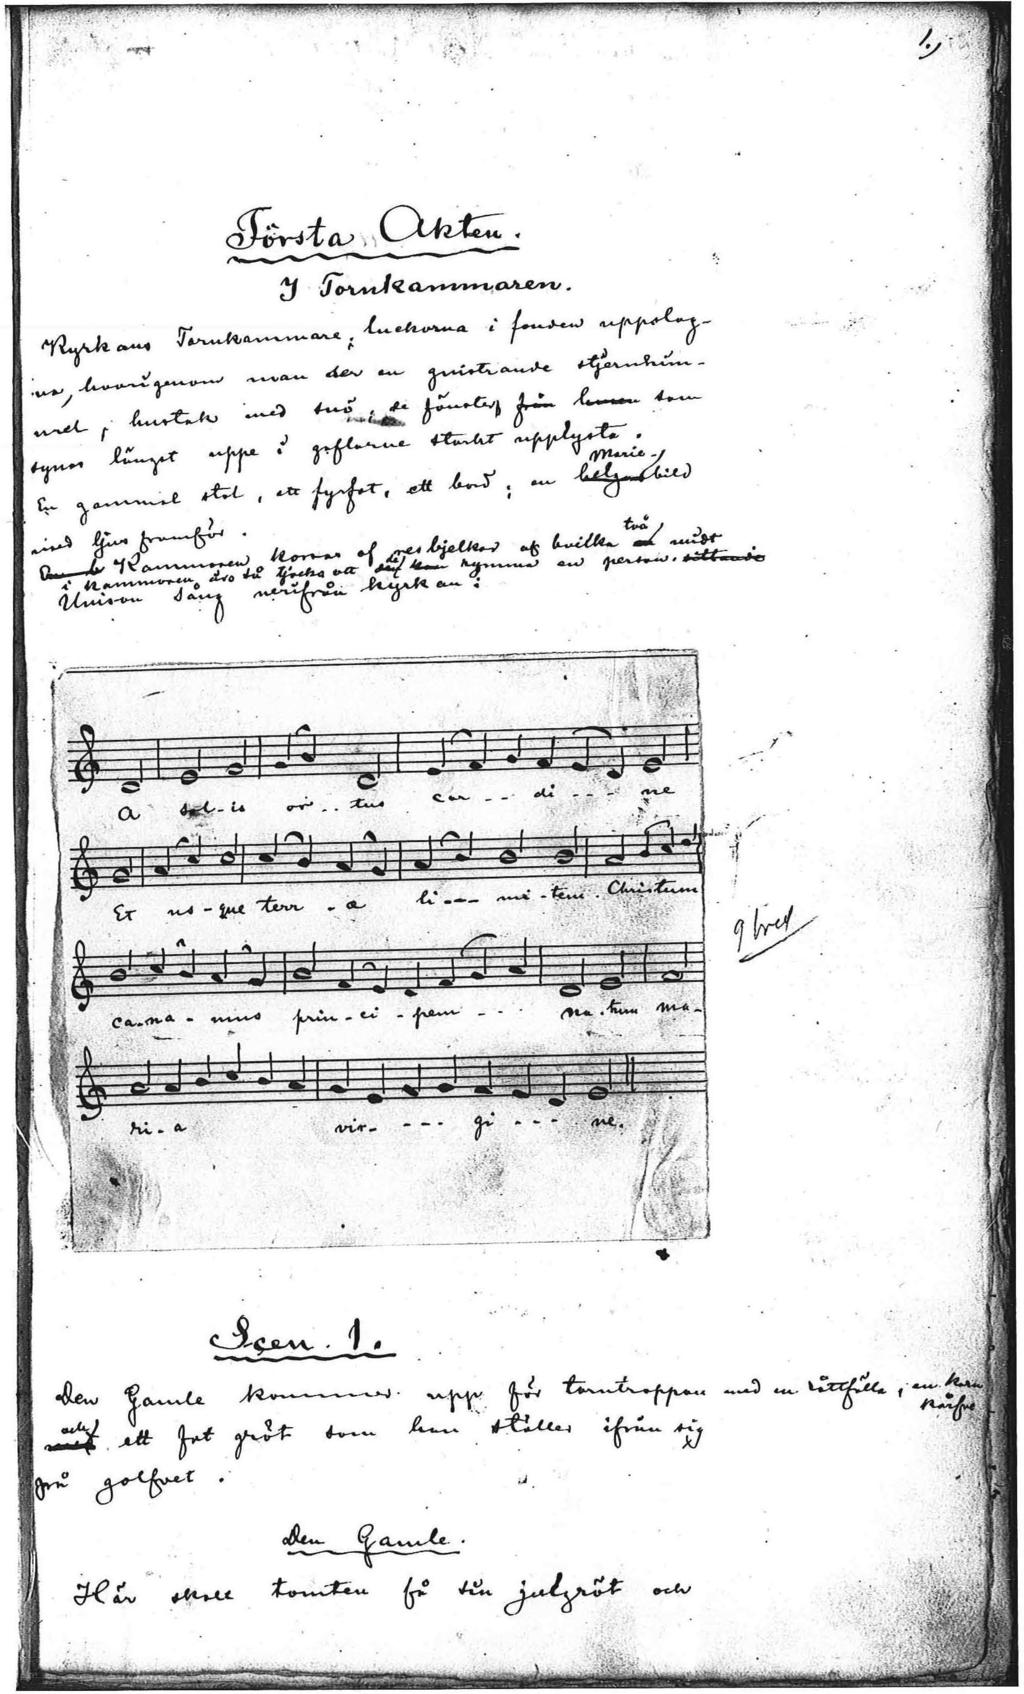 1.)
Första Akten.
I Tornkammaren.
Kyrkans Tornkammare; luckorna i fonden uppslag-
na, hvarigenom man ser en gnistrande stjernhim-
mel; hustak med snö; de fönster från husen som
synas längst uppe i gaflarne starkt upplysta.
Marie-
En gammal stol, ett fyrfat, ett bord; en helgonbild
med ljus framför.
två
Kammaren korsas af resbjelkar af hvilka en midt
i kammaren äro så tjocka att de kan rymma en person. sittande
Unison sång nerifrån kyrkan:
A sol-is or-..tus car--di---ne
Et us-que terr-æ li---mi-tem. Christum
9 bred
ca-na-mus prin-ci-pem--. na-tum ma-
ri-a vir----gi---ne.
Scen. 1.
Den Gamle kommer upp för torntrappan med en råttfälla, en korn
kärfve
och
med ett fat gröt som han ställer ifrån sig
på golfvet.
Den Gamle.
Här skall tomten få sin julgröt och